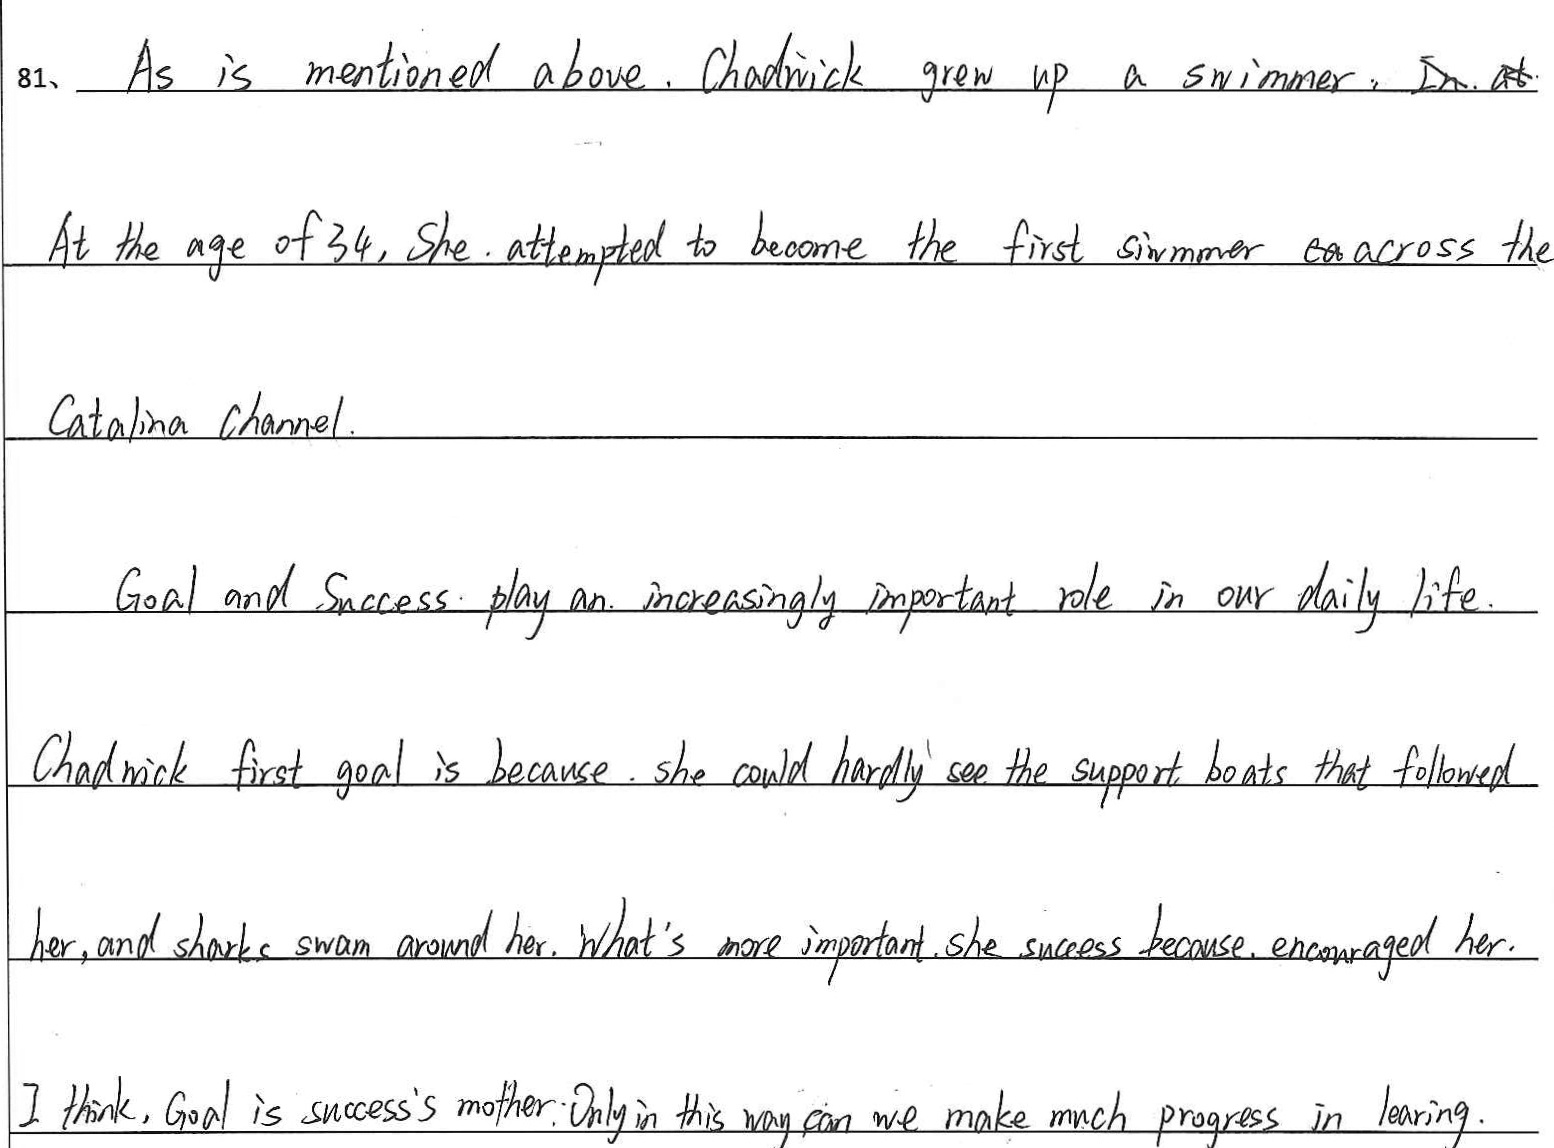 81、 As is mentioned above. Chadwick grew up a swimmer. In at
At the age of 34, She attempted to become the first siwmmer across the
Catalina Channel.
Goal and Success play an increasingly important role in our daily life.
Chadwick first goal is because she could hardly see the support boats that followed
her, and sharks swam around her. What's more important. she success because encouraged her.
I think, Goal is success's mother. Only in this way can we make much progress in learing.